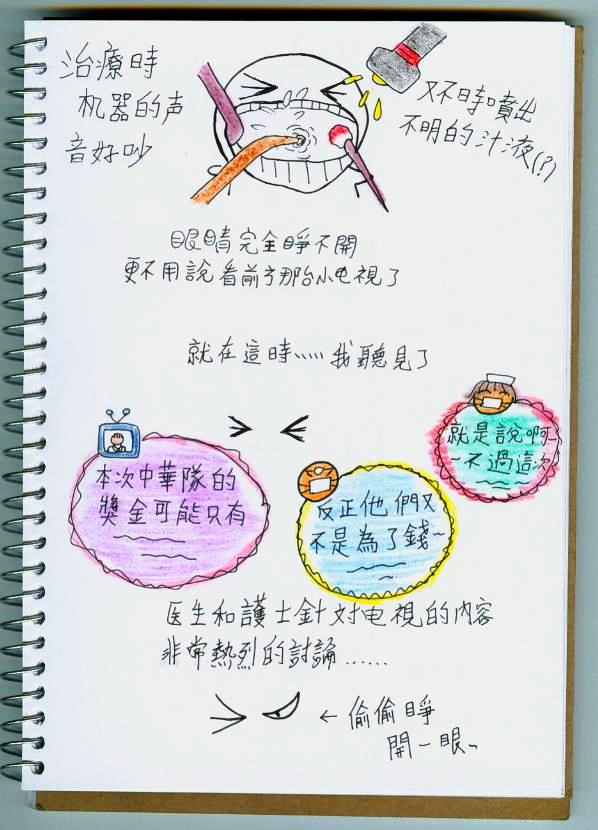 治療時
机器的声
音好吵
又不時噴出
不明的汁液(?)
眼睛完全睜不開
更不用說看前方那台小电視了
就在這時……我聽見了
本次中華隊的
獎金可能只有
反正他們又
不是為了錢~
就是說啊~
~不過這次
医生和護士針对电視的內容
非常熱烈的討論……
← 偷偷睜
開一眼~